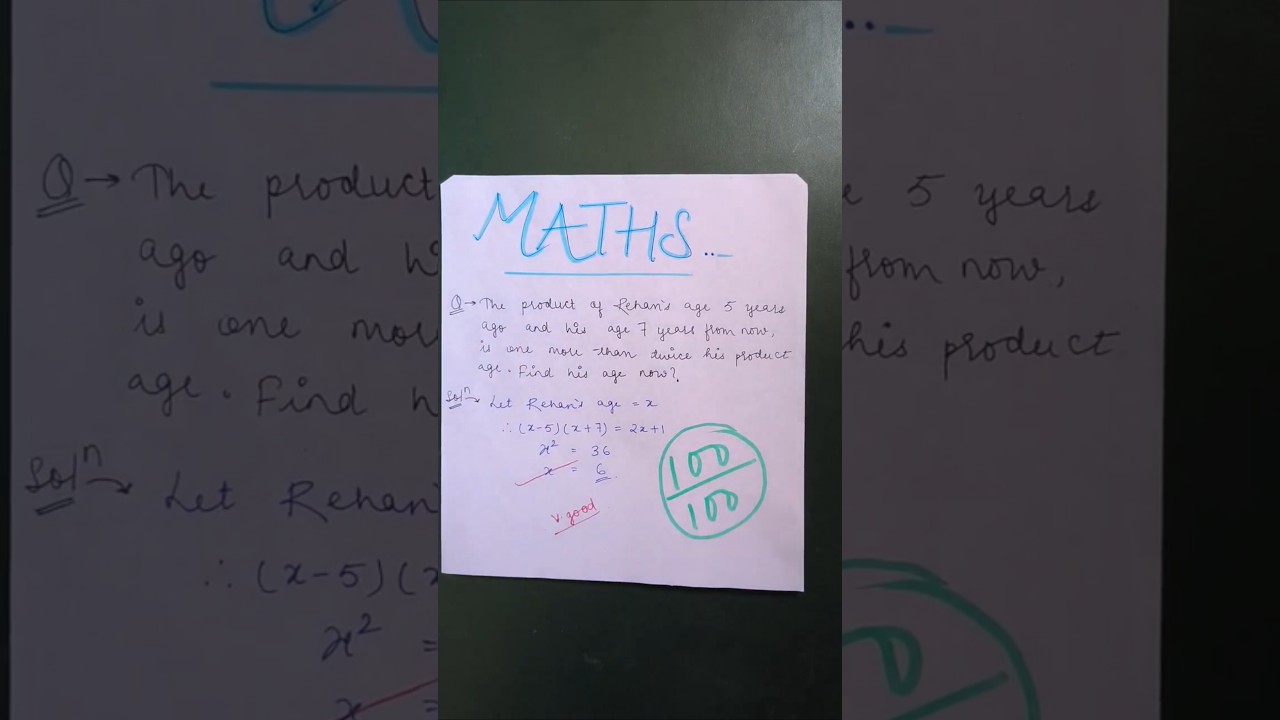 MATHS...
Q→ The product of Rehan's age 5 years
ago and his age 7 years from now,
is one more than twice his product
age. Find his age now?
Solⁿ→ Let Rehan's age = x
∴ (x-5)(x+7) = 2x+1
x² = 36
x = 6
v.good
100
100